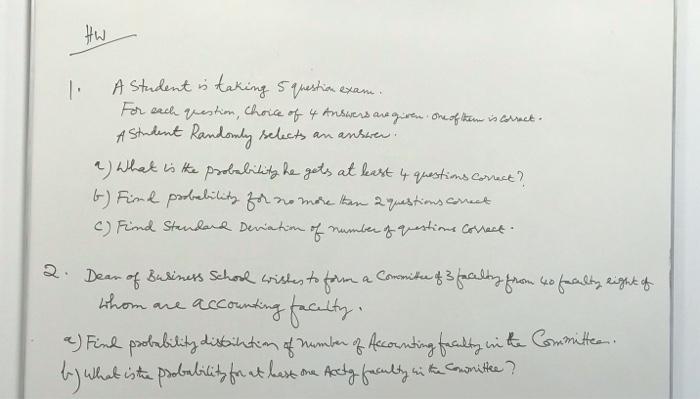 HW
1. A Student is taking 5 question exam.
For each question, Choice of 4 Answers are given. One of them is correct.
A Student Randomly selects an answer.
a) What is the probability he gets at least 4 questions correct?
b) Find probability for no more than 2 questions correct
c) Find Standard Deviation of number of questions correct.
2. Dean of Business School wishes to form a Committee of 3 faculty from 40 faculty eight of
whom are accounting faculty.
a) Find probability distribution of number of Accounting faculty in the Committee.
b) What is the probability for at least one Acctg faculty in the Committee?